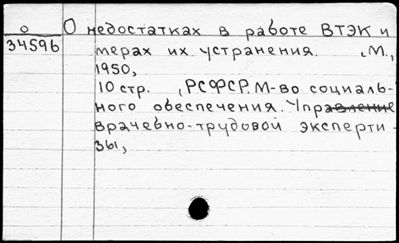 О О недостатках в работе ВТЭК и
34596 мерах их устранения. (М.,
1950,
10 стр. (РСФСР. М-во социаль-
ного обеспечения. Управление
врачебно-трудовой эксперти-
зы,